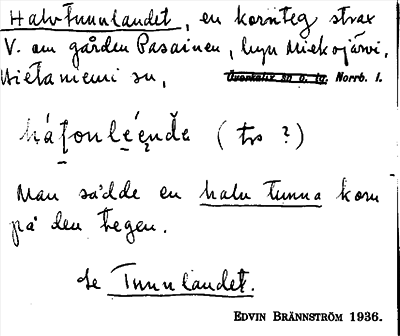 Halvtunnlandet, en kornteg strax
V. om gården Pasainen, byn Miekojärvi,
Hietaniemi sn, Överkalix sn o. tg. Norrb. l.
háfonlèénđe ( trs ? )
Man sådde en halv tunna korn
på den tegen.
Se Tunnlandet.
EDVIN BRÄNNSTRÖM 1936.